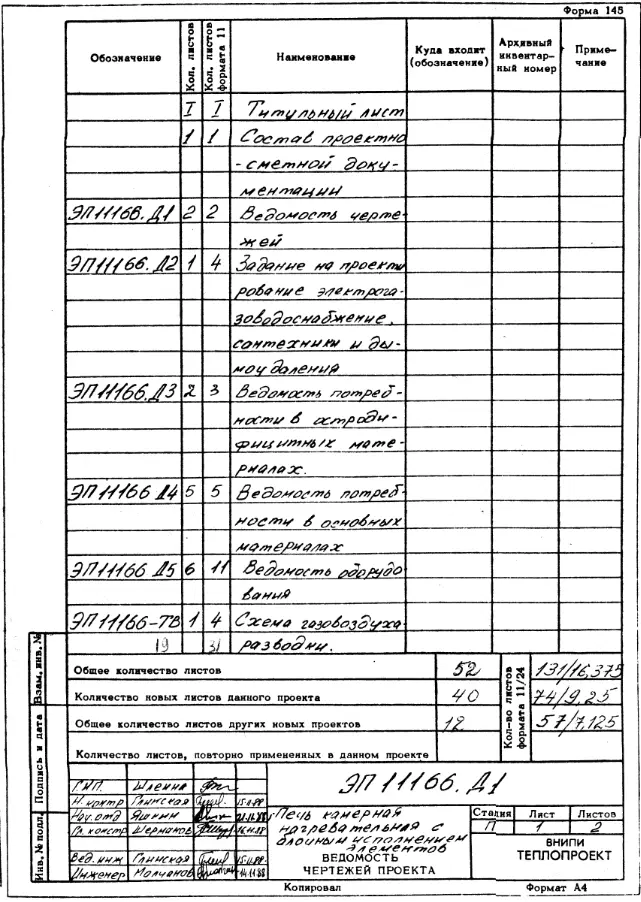 Форма 145
Обозначение Кол. листов Кол. листов формата 11 Наименование Куда входит (обозначение) Архивный инвентарный номер Примечание
I I Титульный лист
1 1 Состав проектно
-сметной доку-
ментации
ЭП11166.Д1 2 2 Ведомость черте-
жей
ЭП11166.Д2 1 4 Задание на проекти
рование электрога-
зоводоснабжение,
сантехники и ды-
моудаления
ЭП11166.Д3 2 3 Ведомость потреб-
ности в остроди-
фицитных мате-
риалах.
ЭП11166 Д4 5 5 Ведомость потреб-
ности в основных
материалах
ЭП11166 Д5 6 11 Ведомость оборудо
вания
ЭП11166-ТВ 1 4 Схема газовоздуха
19 31 разводки.
Общее количество листов 52
Количество новых листов данного проекта 40
Общее количество листов других новых проектов 12
Количество листов, повторно примененных в данном проекте
Кол-во листов формата 11/24
131/16,375
74/9,25
57/7,125
Взам. инв. №
Подпись и дата
Инв. № подл.
ЭП 11166.Д1
ГИП.
Н. контр Глинская 15.11.88
Нач. отд Яшкин
Гл. констр
Вед. инж Глинская 15.11.88
Инженер Молчанов 14.11.88
Печь камерная
нагревательная с
блочным исполнением
элементов
ВЕДОМОСТЬ
ЧЕРТЕЖЕЙ ПРОЕКТА
Стадия Лист Листов
П 1 2
ВНИПИ
ТЕПЛОПРОЕКТ
Копировал Формат А4